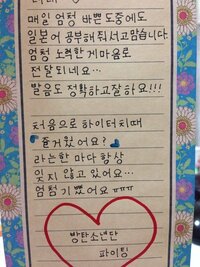 매일 엄청 바쁜 도중에도
일본어 공부해 줘서 고맙습니다
엄청 노력한 게 마음로
전달 되네요…
발음도 정확하고 잘하요!!!
처음으로 하이터치때
"즐거웠어요?"
라는 한 마다 항상
잊지 않고 있어요…
엄청 기뻤어요 ㅠㅠㅠ
방탄소년단
파이팅